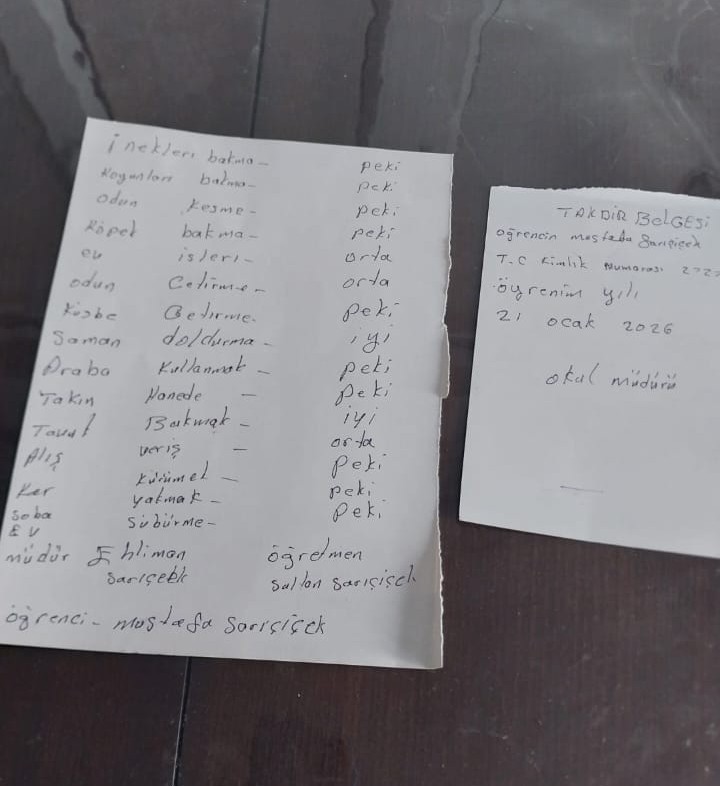 inekleri bakma - peki
Koyunları bakma - peki
odun kesme - peki
Köpek bakma - peki
ev işleri - orta
odun Getirme - orta
Küsbe Getirme - peki
Saman doldurma - iyi
Araba Kullanmak - peki
Takın Hanede - peki
Tavuk Bakmak - iyi
Alış veriş - orta
Ker kürümek - peki
Soba yakmak - peki
EV Sübürme - peki
müdür Ehliman öğretmen
Sarıçiçek Sultan Sarıçiçek
öğrenci - mustafa Sarıçiçek
TAKDİR BELGESİ
öğrencin mustafa Sarıçiçek
T.C Kimlik Numarası
öğrenim yılı
21 ocak 2026
okul müdürü